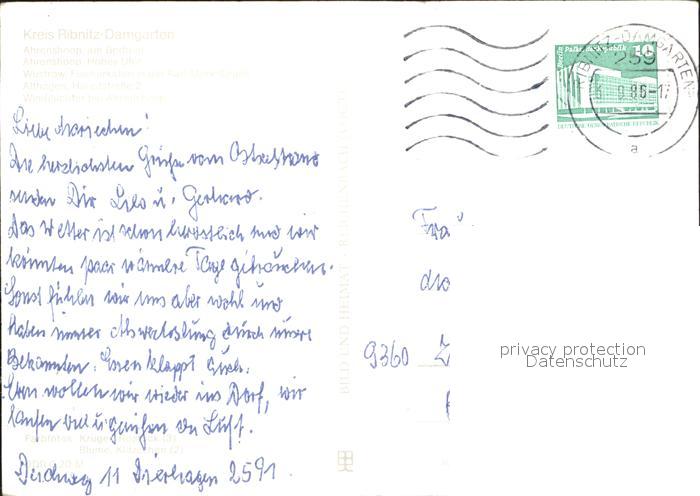 Kreis Ribnitz-Damgarten
Ahrenshoop, am Bodden
Ahrenshoop, Hohes Ufer
Wustrow, Fischerkaten in der Karl-Marx-Straße
Althagen, Hauptstraße 2
Berlin Palast der Republik 10
DEUTSCHE DEMOKRATISCHE REPUBLIK
RIBNITZ-DAMGARTEN
259
9.86-17
a
Liebe
Die herzlichsten Grüße vom Ostseestrand
senden Dir Lilo u. Gerhard.
Das Wetter ist schon herbstlich und wir
könnten paar wärmere Tage gebrauchen.
Sonst fühlen wir uns aber wohl und
haben immer Abwechslung durch unsere
Bekannten. Essen klappt auch.
Eben wollen wir wieder ins Dorf, wir
laufen viel u. genießen die Luft.
Farbfotos: (3)
Blume, (2)
Deichweg 11 Dierhagen 2591.
BILD UND HEIMAT REICHENBACH
Frau
9360 Z
privacy protection
Datenschutz